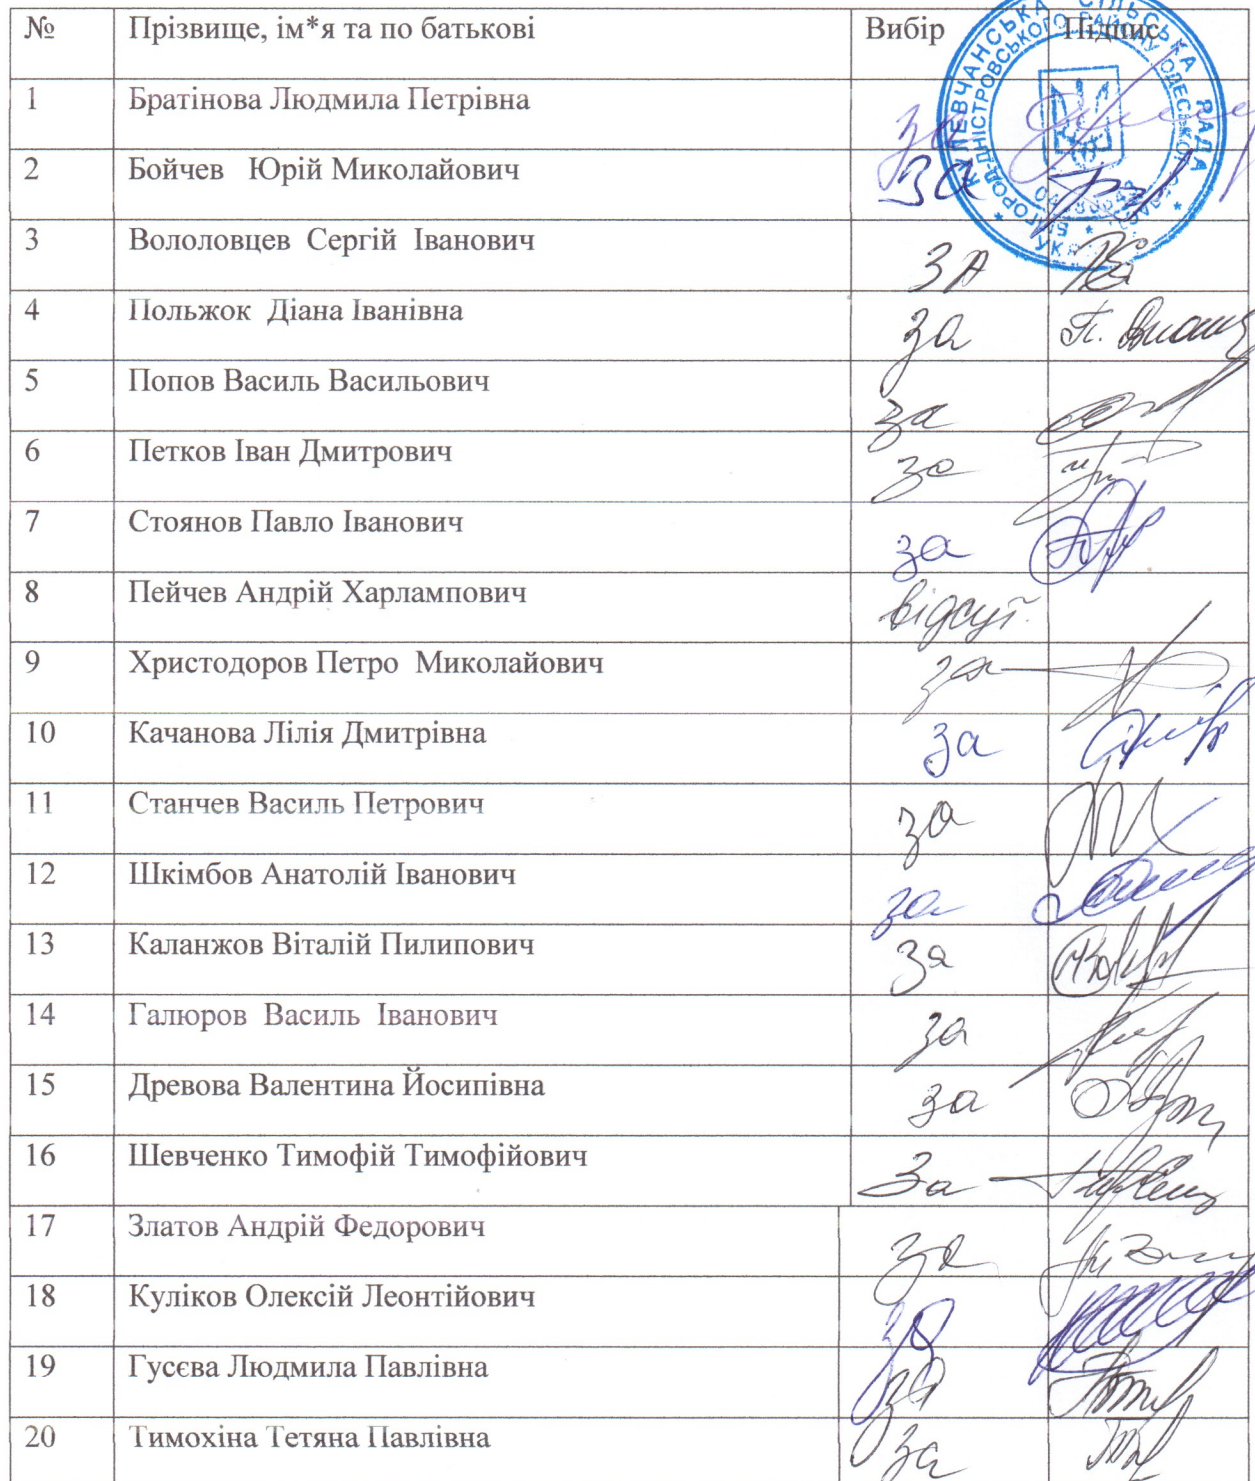 № Прізвище, ім*я та по батькові Вибір Підпис
КУЛЕВЧАНСЬКА СІЛЬСЬКА РАДА
1 Братінова Людмила Петрівна за
2 Бойчев Юрій Миколайович за
3 Вололовцев Сергій Іванович за
4 Польжок Діана Іванівна за
5 Попов Василь Васильович за
6 Петков Іван Дмитрович за
7 Стоянов Павло Іванович за
8 Пейчев Андрій Харлампович відсут.
9 Христодоров Петро Миколайович за
10 Качанова Лілія Дмитрівна за
11 Станчев Василь Петрович за
12 Шкімбов Анатолій Іванович за
13 Каланжов Віталій Пилипович за
14 Галюров Василь Іванович за
15 Древова Валентина Йосипівна за
16 Шевченко Тимофій Тимофійович За
17 Златов Андрій Федорович за
18 Куліков Олексій Леонтійович за
19 Гусєва Людмила Павлівна за
20 Тимохіна Тетяна Павлівна за